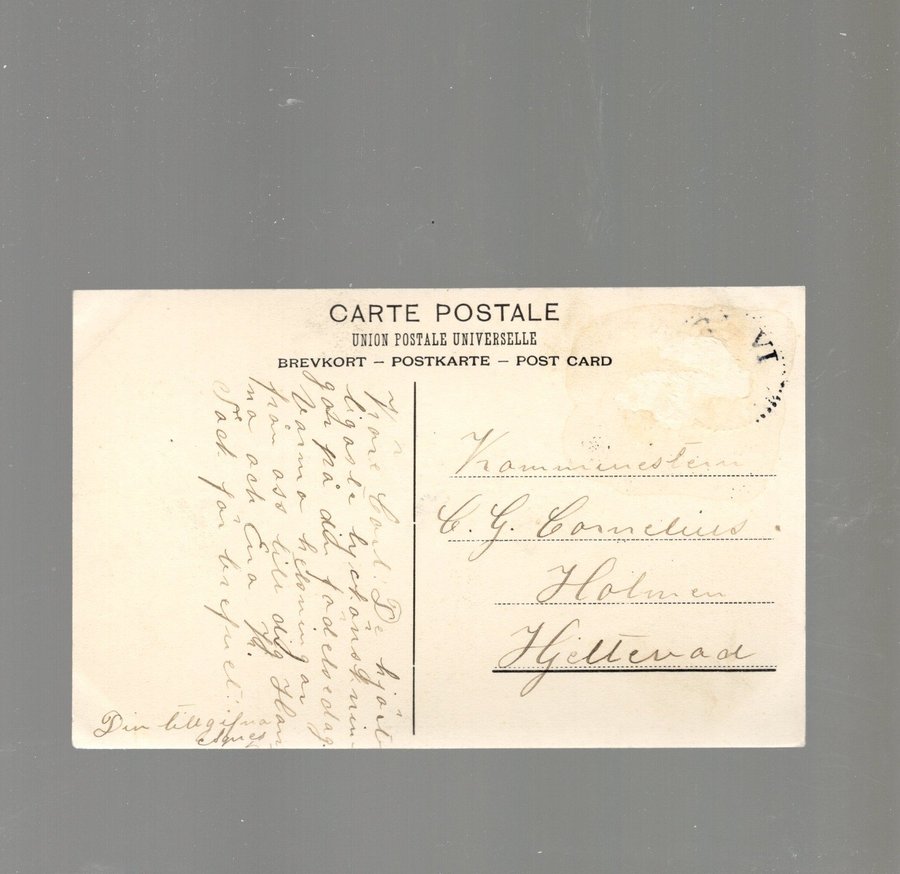 CARTE POSTALE
UNION POSTALE UNIVERSELLE
BREVKORT – POSTKARTE – POST CARD
VI
Käre Carl! De hjärt
ligaste lyckönsknin
gar på din födelsedag.
Varma helsningar
från oss till dig Han
na och Eva
Tack för brefvet.
Din tillgifna
Agnes
Komministern
C. G. Cornelius.
Holmen
Hjeltevad